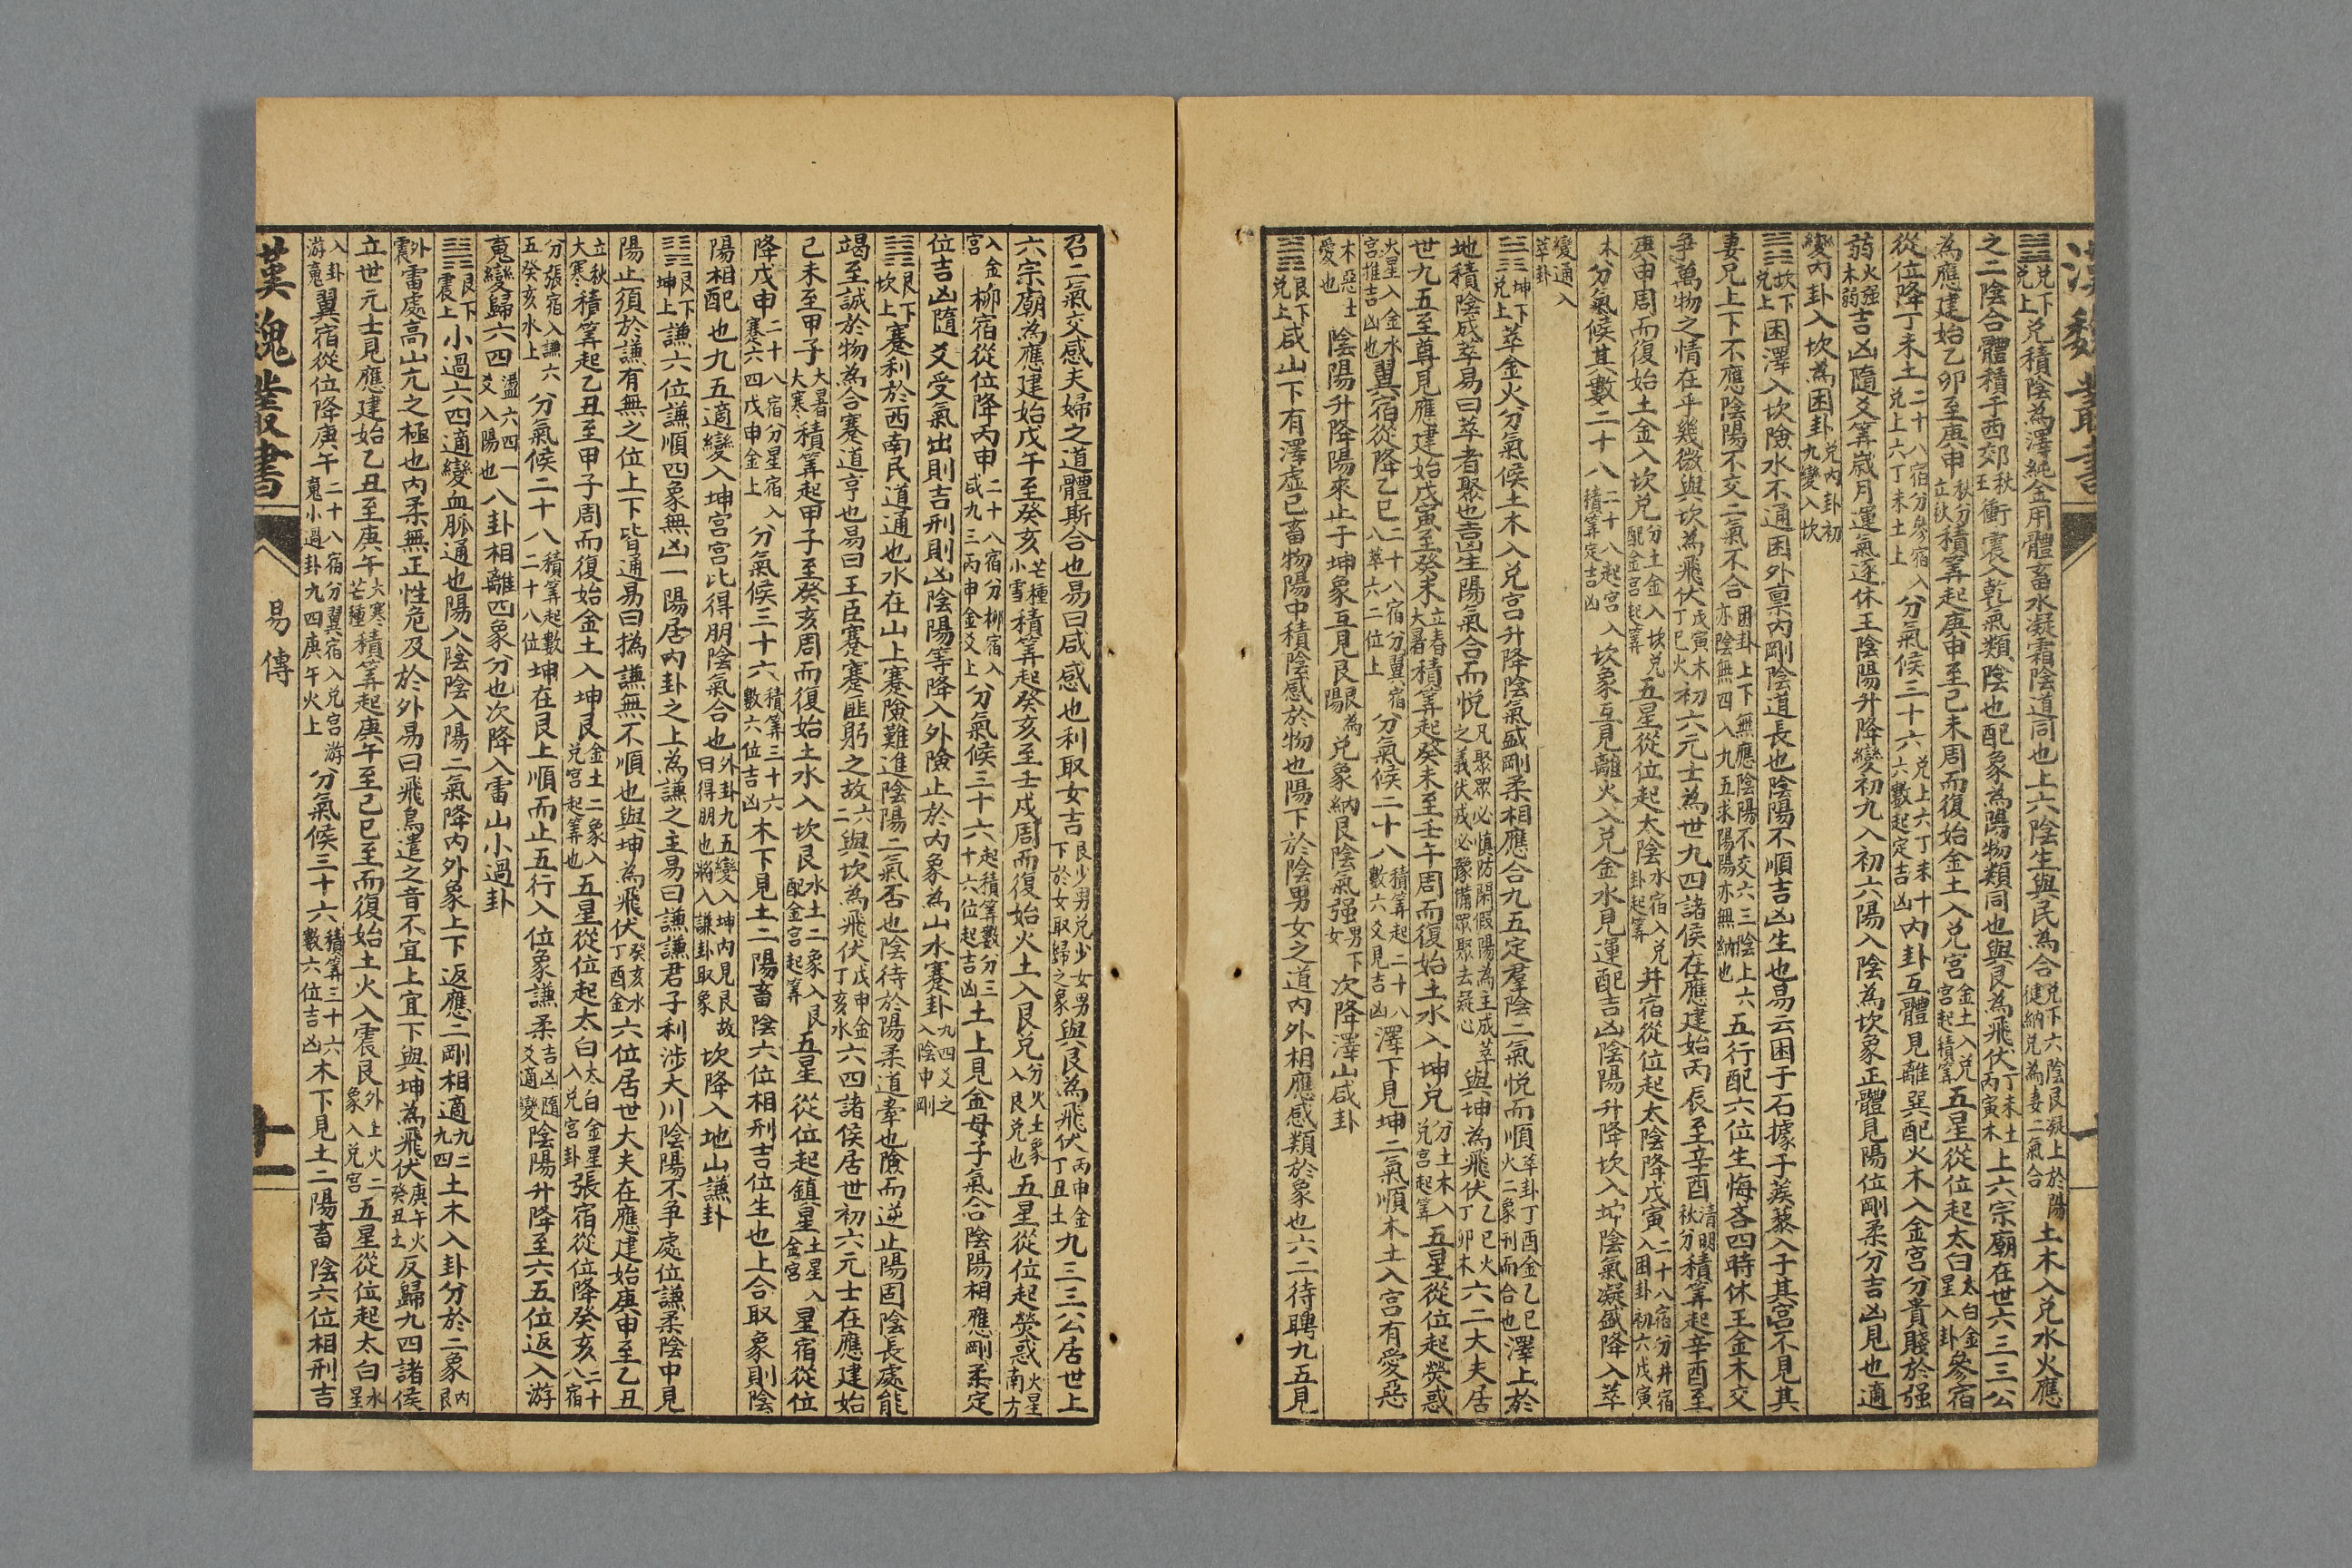 漢魏叢書
兌下兌上兌積陰為澤純金用體畜水凝霜陰道同也上六陰生與民為合兌下六陰艮凝上於陽健納兌為妻二氣合土木入兌水火應
之二陰合體積于西郊秋王衝震入乾氣類陰也配象為陽物類同也與艮為飛伏丁未土丙寅木上六宗廟在世六三三公
為應建始乙卯至庚申秋分立秋積筭起庚申至己未周而復始金土入兌宮金土入兌宮起積筭五星從位起太白太白金星入卦參宿
從位降丁未土二十八宿分參宿入兌上六丁未土上分氣候三十六兌上六丁未十六數起定吉凶內卦互體見離巽配火木入金宮分貴賤於强
弱火强木弱吉凶隨爻筭歲月運氣逐休王陰陽升降變初九入初六陽入陰為坎象正體見陽位剛柔分吉凶見也適
變內卦入坎為困卦兌內卦初九變入坎
坎下兌上困澤入坎險水不通困外禀內剛陰道長也陰陽不順吉凶生也易云困于石據于蒺藜入于其宮不見其
妻凶上下不應陰陽不交二氣不合困卦上下無應陰陽不交六三陰上六亦陰無四入九五求陽陽亦無納也五行配六位生悔吝四時休王金木交
爭萬物之情在乎幾微與坎為飛伏戊寅木丁巳火初六元士為世九四諸侯在應建始丙辰至辛酉清明秋分積筭起辛酉至
庚申周而復始土金入坎兌分土金入坎兌配金宮起筭五星從位起太陰水宿入兌卦起筭井宿從位起太陰降戊寅二十八宿分井宿入困卦初六戊寅
木分氣候其數二十八二十八起宮積筭定吉凶入坎象互見離火入兌金水見運配吉凶陰陽升降坎入坤陰氣凝盛降入萃
變通入萃卦
坤下兌上萃金火分氣候土木入兌宮升降陰氣盛剛柔相應合九五定羣陰二氣悅而順萃卦丁酉金乙巳火二象刑而合也澤上於
地積陰成萃易曰萃者聚也吉凶生陽氣合而悅凡聚眾必慎防閑假陽為主成萃之義伏戎必豫備眾聚去疑心與坤為飛伏乙巳火丁卯木六二大夫居
世九五至尊見應建始戊寅至癸未立春大暑積筭起癸未至壬午周而復始土水入坤兌分土木入兌宮起筭五星從位起熒惑
火星入金水宮推吉凶也翼宿從降乙巳二十八宿分翼宿八萃六二位上分氣候二十八積筭起二十八數六爻見吉凶澤下見坤二氣順木土入宮有愛惡
木惡土愛也陰陽升降陽來止于坤象互見艮艮為陽兌象納艮陰氣强男下女次降澤山咸卦
艮下兌上咸山下有澤虛己畜物陽中積陰感於物也陽下於陰男女之道內外相應感類於象也六二待聘九五見
召二氣交感夫婦之道體斯合也易曰咸感也利取女吉艮少男兌少女男下於女取婦之象與艮為飛伏丙申金丁丑土九三三公居世上
六宗廟為應建始戊午至癸亥芒種小雪積筭起癸亥至壬戌周而復始火土入艮兌分火土象入艮兌也五星從位起熒惑火星南方
入金宮柳宿從位降丙申二十八宿分柳宿入咸九三丙申金爻上分氣候三十六起積筭數分三十六位起吉凶土上見金母子氣合陰陽相應剛柔定
位吉凶隨爻受氣出則吉刑則凶陰陽等降入外險止於內象為山水蹇卦九四爻之入陰申剛
艮下坎上蹇利於西南民道通也水在山上蹇險難進陰陽二氣否也陰待於陽柔道牽也險而逆止陽固陰長處能
竭至誠於物為合蹇道亨也易曰王臣蹇蹇匪躬之故六二與坎為飛伏戊申金丁亥水六四諸侯居世初六元士在應建始
己未至甲子大暑大寒積筭起甲子至癸亥周而復始土水入坎艮水土二象入艮配金宮起筭五星從位起鎮星土星入金宮星宿從位
降戊申二十八宿分星宿入蹇六四戊申金上分氣候三十六積筭三十六數六位吉凶木下見土二陽畜陰六位相刑吉位生也上合取象則陰
陽相配也九五適變入坤宮宮比得朋陰氣合也外卦九五變入坤內見艮故曰得朋也將入謙卦取象坎降入地山謙卦
艮下坤上謙六位謙順四象無凶一陽居內卦之上為謙之主易曰謙謙君子利涉大川陰陽不爭處位謙柔陰中見
陽止須於謙有無之位上下皆通易曰撝謙無不順也與坤為飛伏癸亥水丁酉金六位居世大夫在應建始庚申至乙丑
立秋大寒積筭起乙丑至甲子周而復始金土入坤艮金土二象入兌宮起筭也五星從位起太白太白金星入兌宮卦張宿從位降癸亥二十八宿
分張宿入謙六五癸亥水上分氣候二十八積筭起數二十八位坤在艮上順而止五行入位象謙柔吉凶隨爻適變陰陽升降至六五位返入游
䰟變歸六四盪六四一爻入陽也八卦相離四象分也次降入雷山小過卦
艮下震上小過六四適變血脈通也陽入陰陰入陽二氣降內外象上下返應二剛相適九三九四土木入卦分於二象內艮
外震雷處高山亢之極也內柔無正性危及於外易曰飛鳥遺之音不宜上宜下與坤為飛伏庚午火癸丑土反歸九四諸侯
立世元士見應建始乙丑至庚午大寒芒種積筭起庚午至己巳至而復始土火入震艮外土火二象入兌宮五星從位起太白水星
入卦游䰟翼宿從位降庚午二十八宿分翼宿入兌宮游䰟小過卦九四庚午火上分氣候三十六積筭三十六數六位吉凶木下見土二陽畜陰六位相刑吉
漢魏叢書
易傳
十一